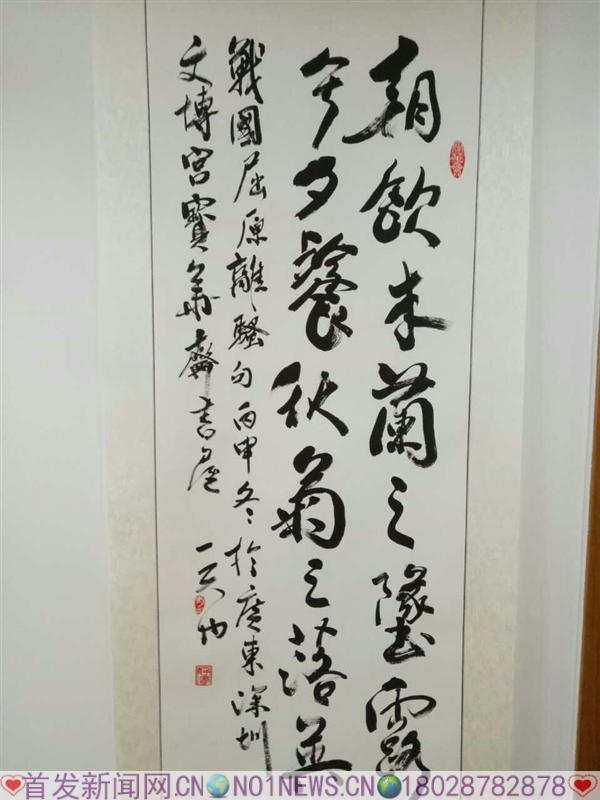 朝飲木蘭之墜露
兮夕餐秋菊之落英
戰國屈原離騷句丙申冬於廣東深圳
文博宮寶齋書屋
首发新闻网.CN NO1NEWS.CN 18028782878